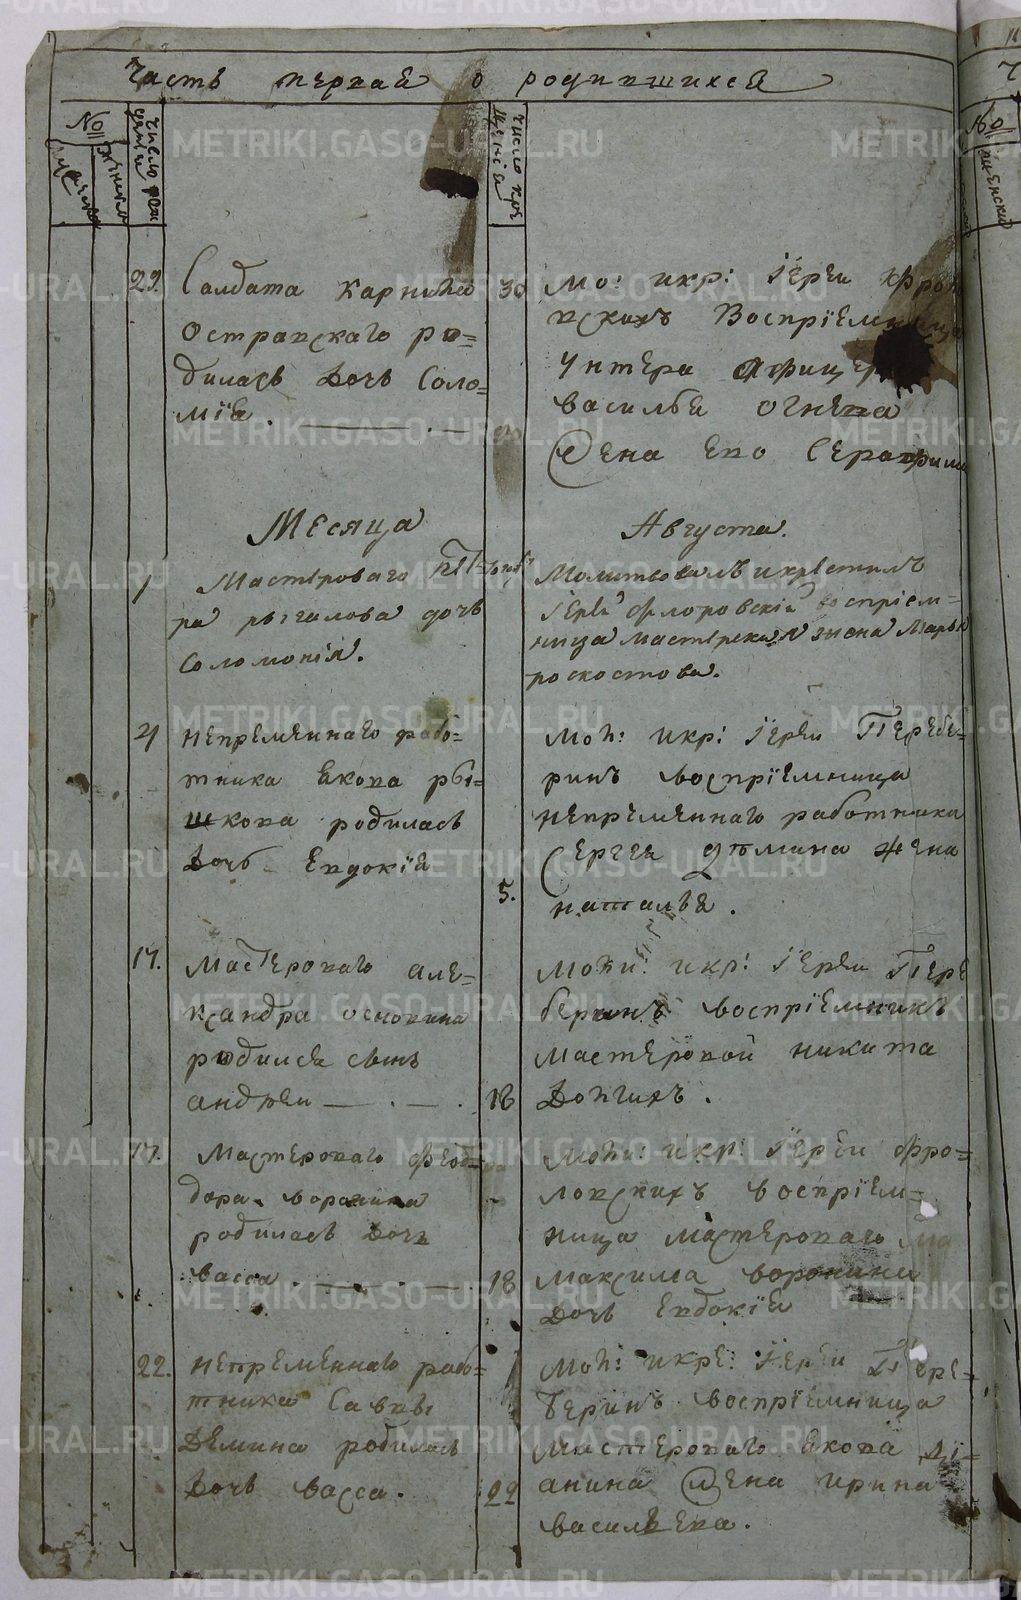 Часть первая о родившихся
№
мужеска
женска
число рож
дения
число кре
щения
№
женски
29.
Салдата Карнила
Островскаго ро=
дилась дочь Соло=
мїя.
30
Мо: икр: Іереи Фрол
вскихъ Воспрїемница
унтера афицера
василья огнева
жена ево Серафима
Месяца Августа.
1
Мастероваго Пет
ра рыгалова дочь
Соломонія.
Молитвовалъ и крѣстилъ
Іерей Флоровскій воспріем=
ница мастерская жена Марья
роскостова.
4
непремѣннаго рабо=
тника Якова ры=
шкова родилась
дочь Евдокїя
5.
Мол: икр: Іереи Перебе=
ринъ воспрїемница
непремѣннаго работника
Сергея демина жена
наталья.
17.
мастероваго але=
ксандра основина
родился сынъ
андреи
18
Моли: икр: Іереи Пере
беринъ воспрїемникъ
мастеровой никита
Долгихъ.
17.
Мастероваго Фео=
дора воронина
родилась дочь
васса.
18
Моли: икр: Іереи Фро=
ловскихъ воспрїем=
ница мастероваго ма
Максима воронина
дочь Евдокїя
22.
непремѣннаго рабо=
тника Саввы
Демина родилась
дочь васса.
22
Мол: икре: Іереи Пере=
беринъ воспрїемница
мастероваго Якова ді=
анина жена ирина
васильева.
METRIKI.GASO-URAL.RU